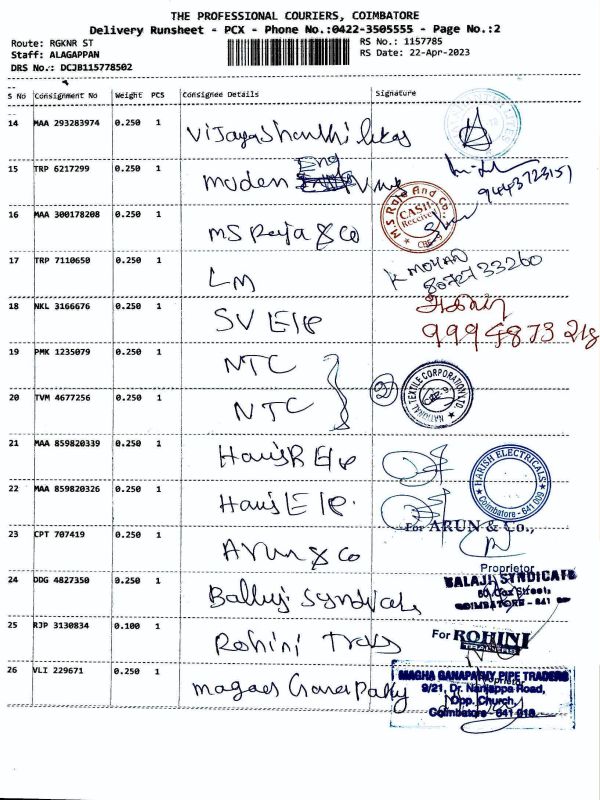 THE PROFESSIONAL COURIERS, COIMBATORE
Delivery Runsheet - PCX - Phone No.:0422-3505555 - Page No.:2
Route: RGKNR ST RS No.: 1157785
Staff: ALAGAPPAN RS Date: 22-Apr-2023
DRS No.: DCJB115778502
S No Consignment No Weight PCS Consignee Details Signature
14 MAA 293283974 0.250 1
15 TRP 6217299 0.250 1 moden Eng
9443723151
16 MAA 300178208 0.250 1 MS Raja & Co M.S Raja And Co. CASH Received CBE
17 TRP 7110650 0.250 1 LM K MOHAN
8072733260
18 NKL 3166676 0.250 1 SV Ele
9994873218
19 PMK 1235079 0.250 1 NTC
20 TVM 4677256 0.250 1 NTC 2 NATIONAL TEXTILE CORPORATION LTD.
21 MAA 859820339 0.250 1 HARISH ELECTRICALS Coimbatore - 641 009
22 MAA 859820326 0.250 1 Haris Ele
For ARUN & Co.,
23 CPT 707419 0.250 1 Arun & Co
Proprietor
24 DDG 4827350 0.250 1 BALAJI SYNDICATE
60, Cox Street,
COIMBATORE - 641
25 RJP 3130834 0.100 1 Rohini For ROHINI
26 VLI 229671 0.250 1 MAGHA GANAPATHY PIPE TRADERS
Proprietor
9/21, Dr. Nanjappa Road,
Opp. Church,
Coimbatore - 641 018.